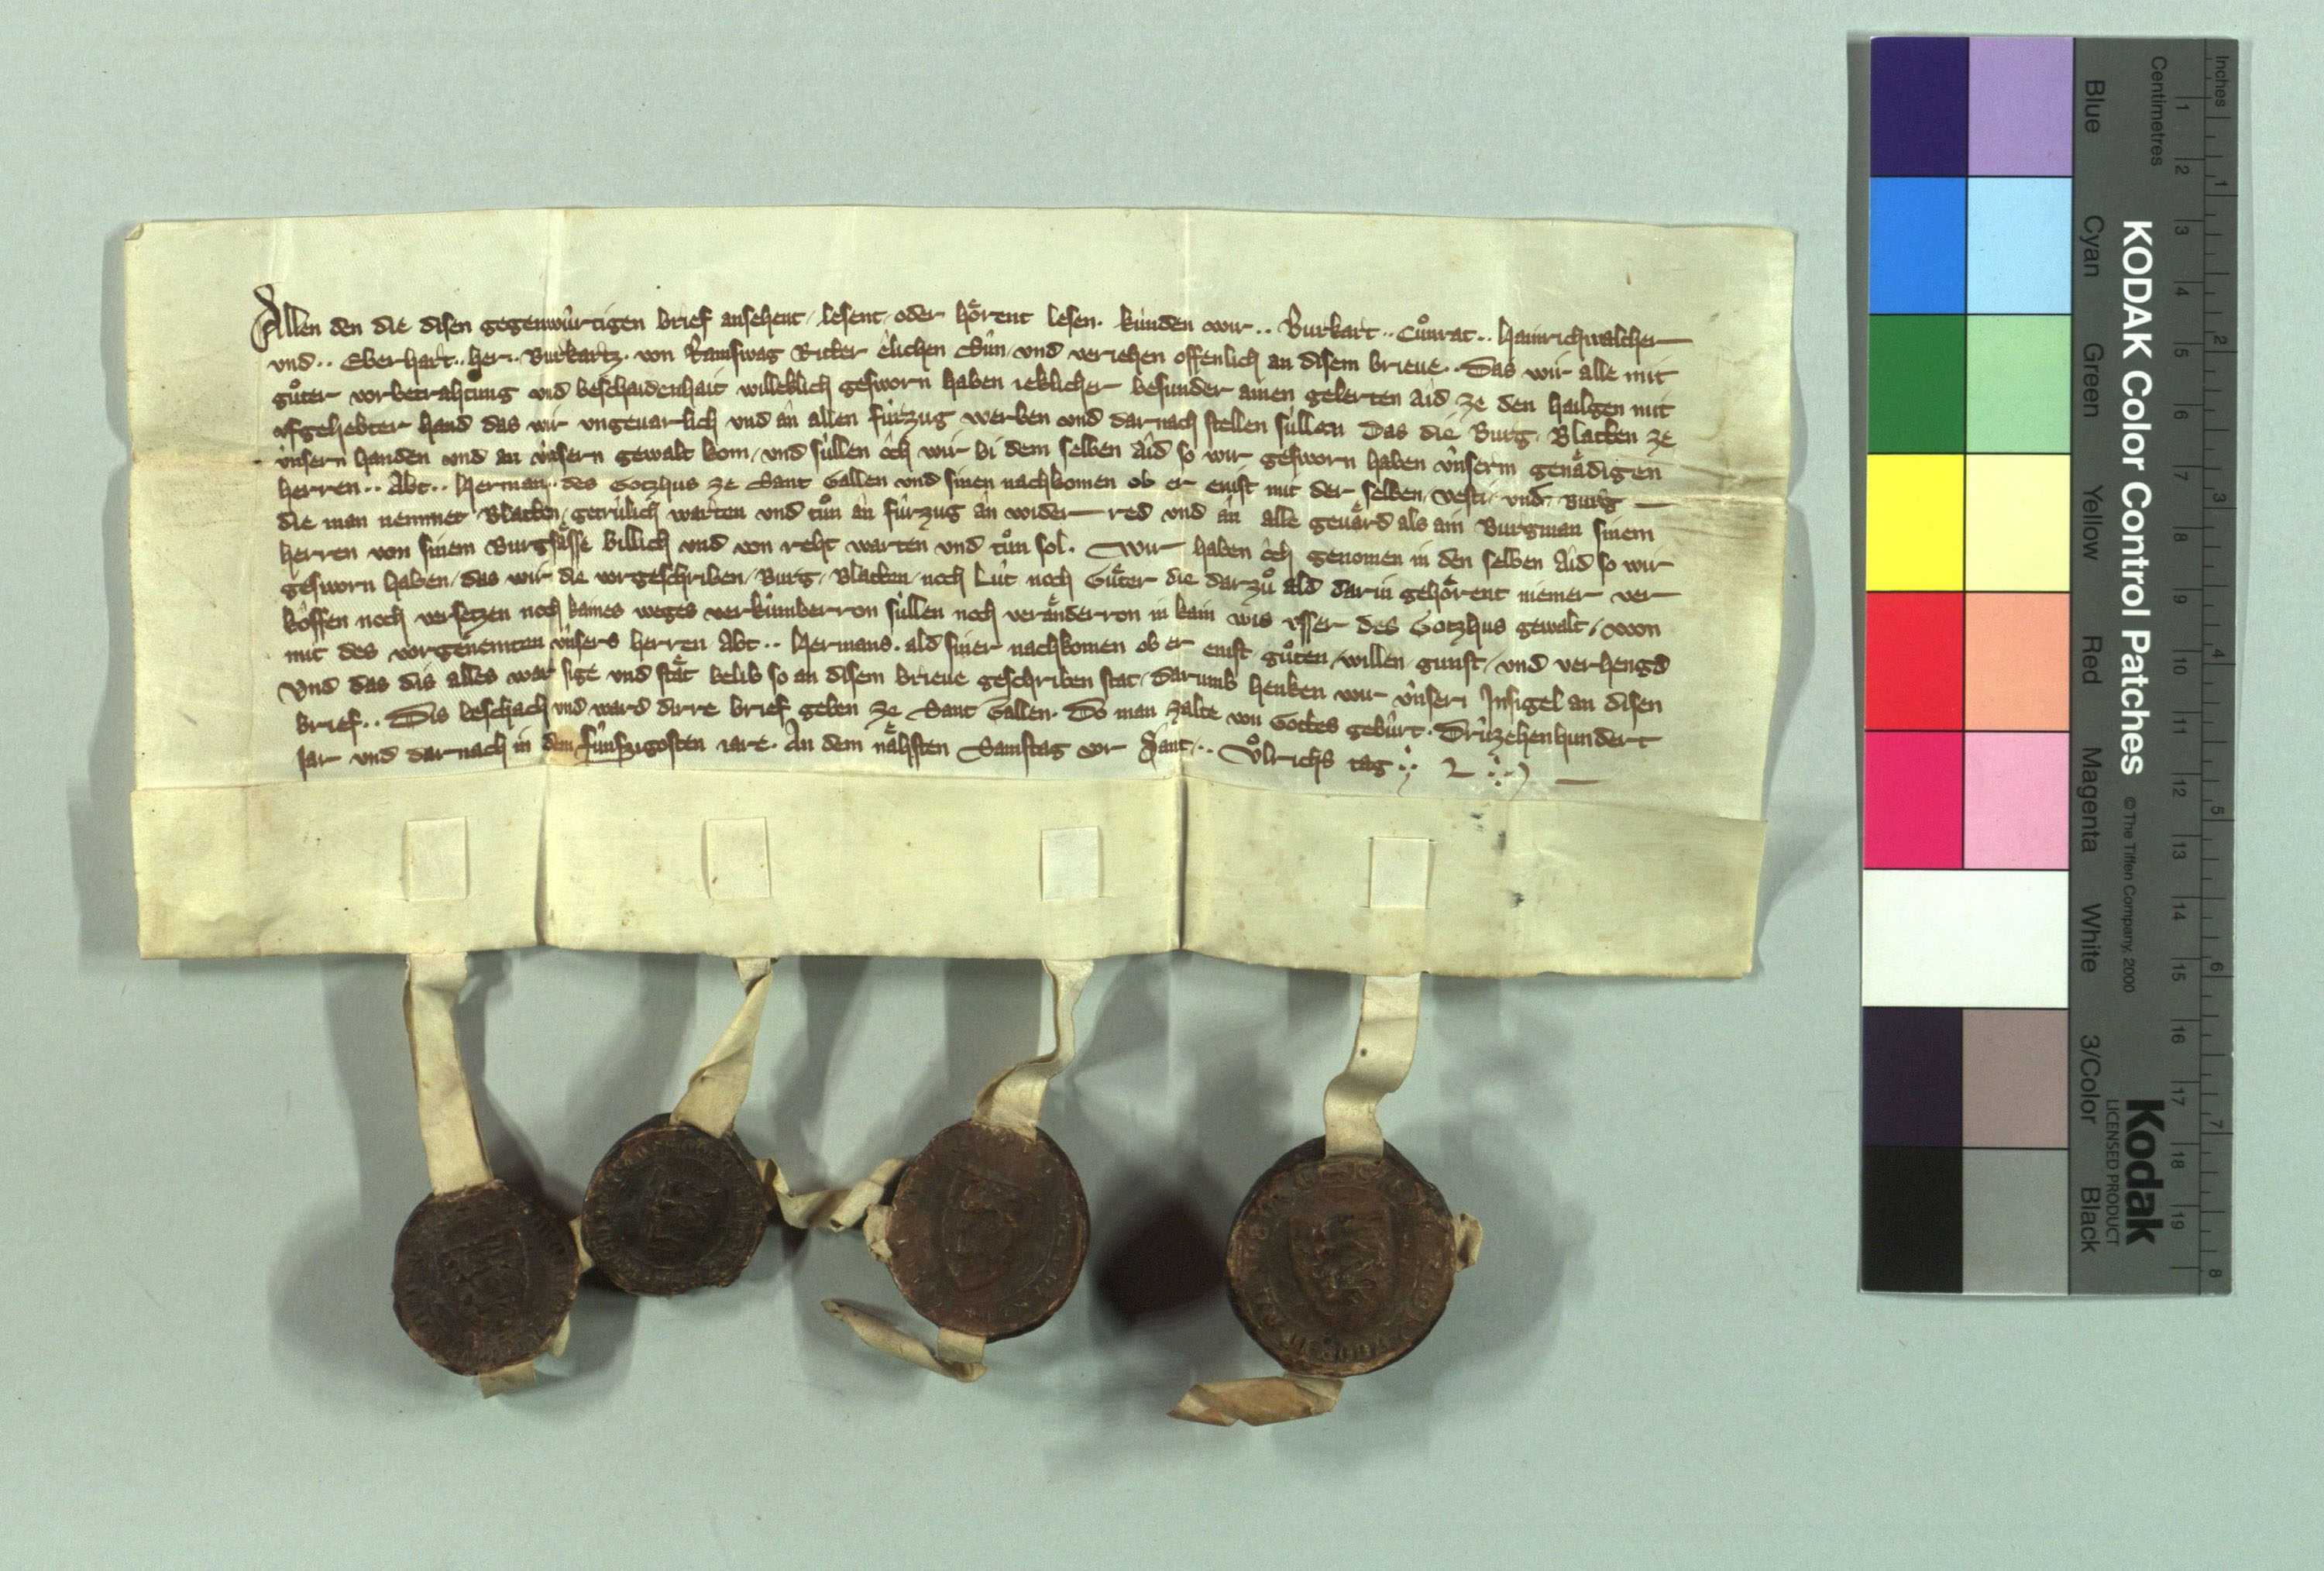 Allen den die disen gegenwùrtigen brief ansehent / lesent / oder hoͤrent lesen. kùnden wir .. Burkart .. Cuͦnrat .. Hainrich walcher
vnd .. Eberhart .. her .. Burkartz. von Ramswag Ritter êlichen Sùn / vnd veriehen offenlich an disem brieue .. Das wir alle mit
guͦter vorbetrahtung vnd beschaidenhait willeklich gesworn haben ieklicher besunder ainen gelerten Aid ze den hailgen mit
vfgehebter hand das wir vngeuarlich vnd ân allen fùrzug werben vnd darnach stellen sùllen Das die Burg. Blatten ze
ùnsern handen vnd an ùnsern gewalt kom / vnd sùllen ôch wir bi dem selben Aid so wir gesworn haben ùnserm genaͤdigen
herren .. Abt .. Herman .. des Gotzhus ze Sant Gallen vnd sinen nachkomen ob er enist mit der selben / vesti / vnd / Burg
die man nemmet / Blatten / getrùlich warten vnd tuͦn ân fùrzug ân wider red vnd ân alle geuaͤrd als ain Burgman sinem
herren von sinem Burgsaͤsse billich vnd von reht warten vnd tuͦn sol. Wir haben ôch genomen in den selben Aid so wir
gesworn haben / das wir die vorgeschriben / Burg / Blatten / noch Lùt noch Guͤter die darzuͦ ald darin gehoͤrent niemer ver
kôffen noch versetzen noch kaines weges verkùmberron sùllen noch veraͤnderron in kain wis vsser des Gotzhus gewalt / won
mit des vorgenemten ùnsers herren Abt .. Hermans. ald siner nachkomen ob er enist / guͦten / willen / gunst / vnd verhengd
Vnd das dis alles war sige vnd staͤt belib so an disem brieue geschriben stat / Darumb henken wir ùnserù Insigel an disen
brief .. Dis beschach vnd ward dirre brief geben ze Sant Gallen. Do man zalte von Gottes gebùrt. Drùzehenhundert
Jar vnd darnach in dem fùnfzigosten iare. An dem naͤhsten Samstag vor Sant .. Vͦlrichs tag
KODAK Color Control Patches
© The Tiffen Company, 2000
Kodak
LICENSED PRODUCT
Inches
Centimetres
Blue
Cyan
Green
Yellow
Red
Magenta
White
3/Color
Black
1 2 3 4 5 6 7 8 9 10 11 12 13 14 15 16 17 18 19
1 2 3 4 5 6 7 8